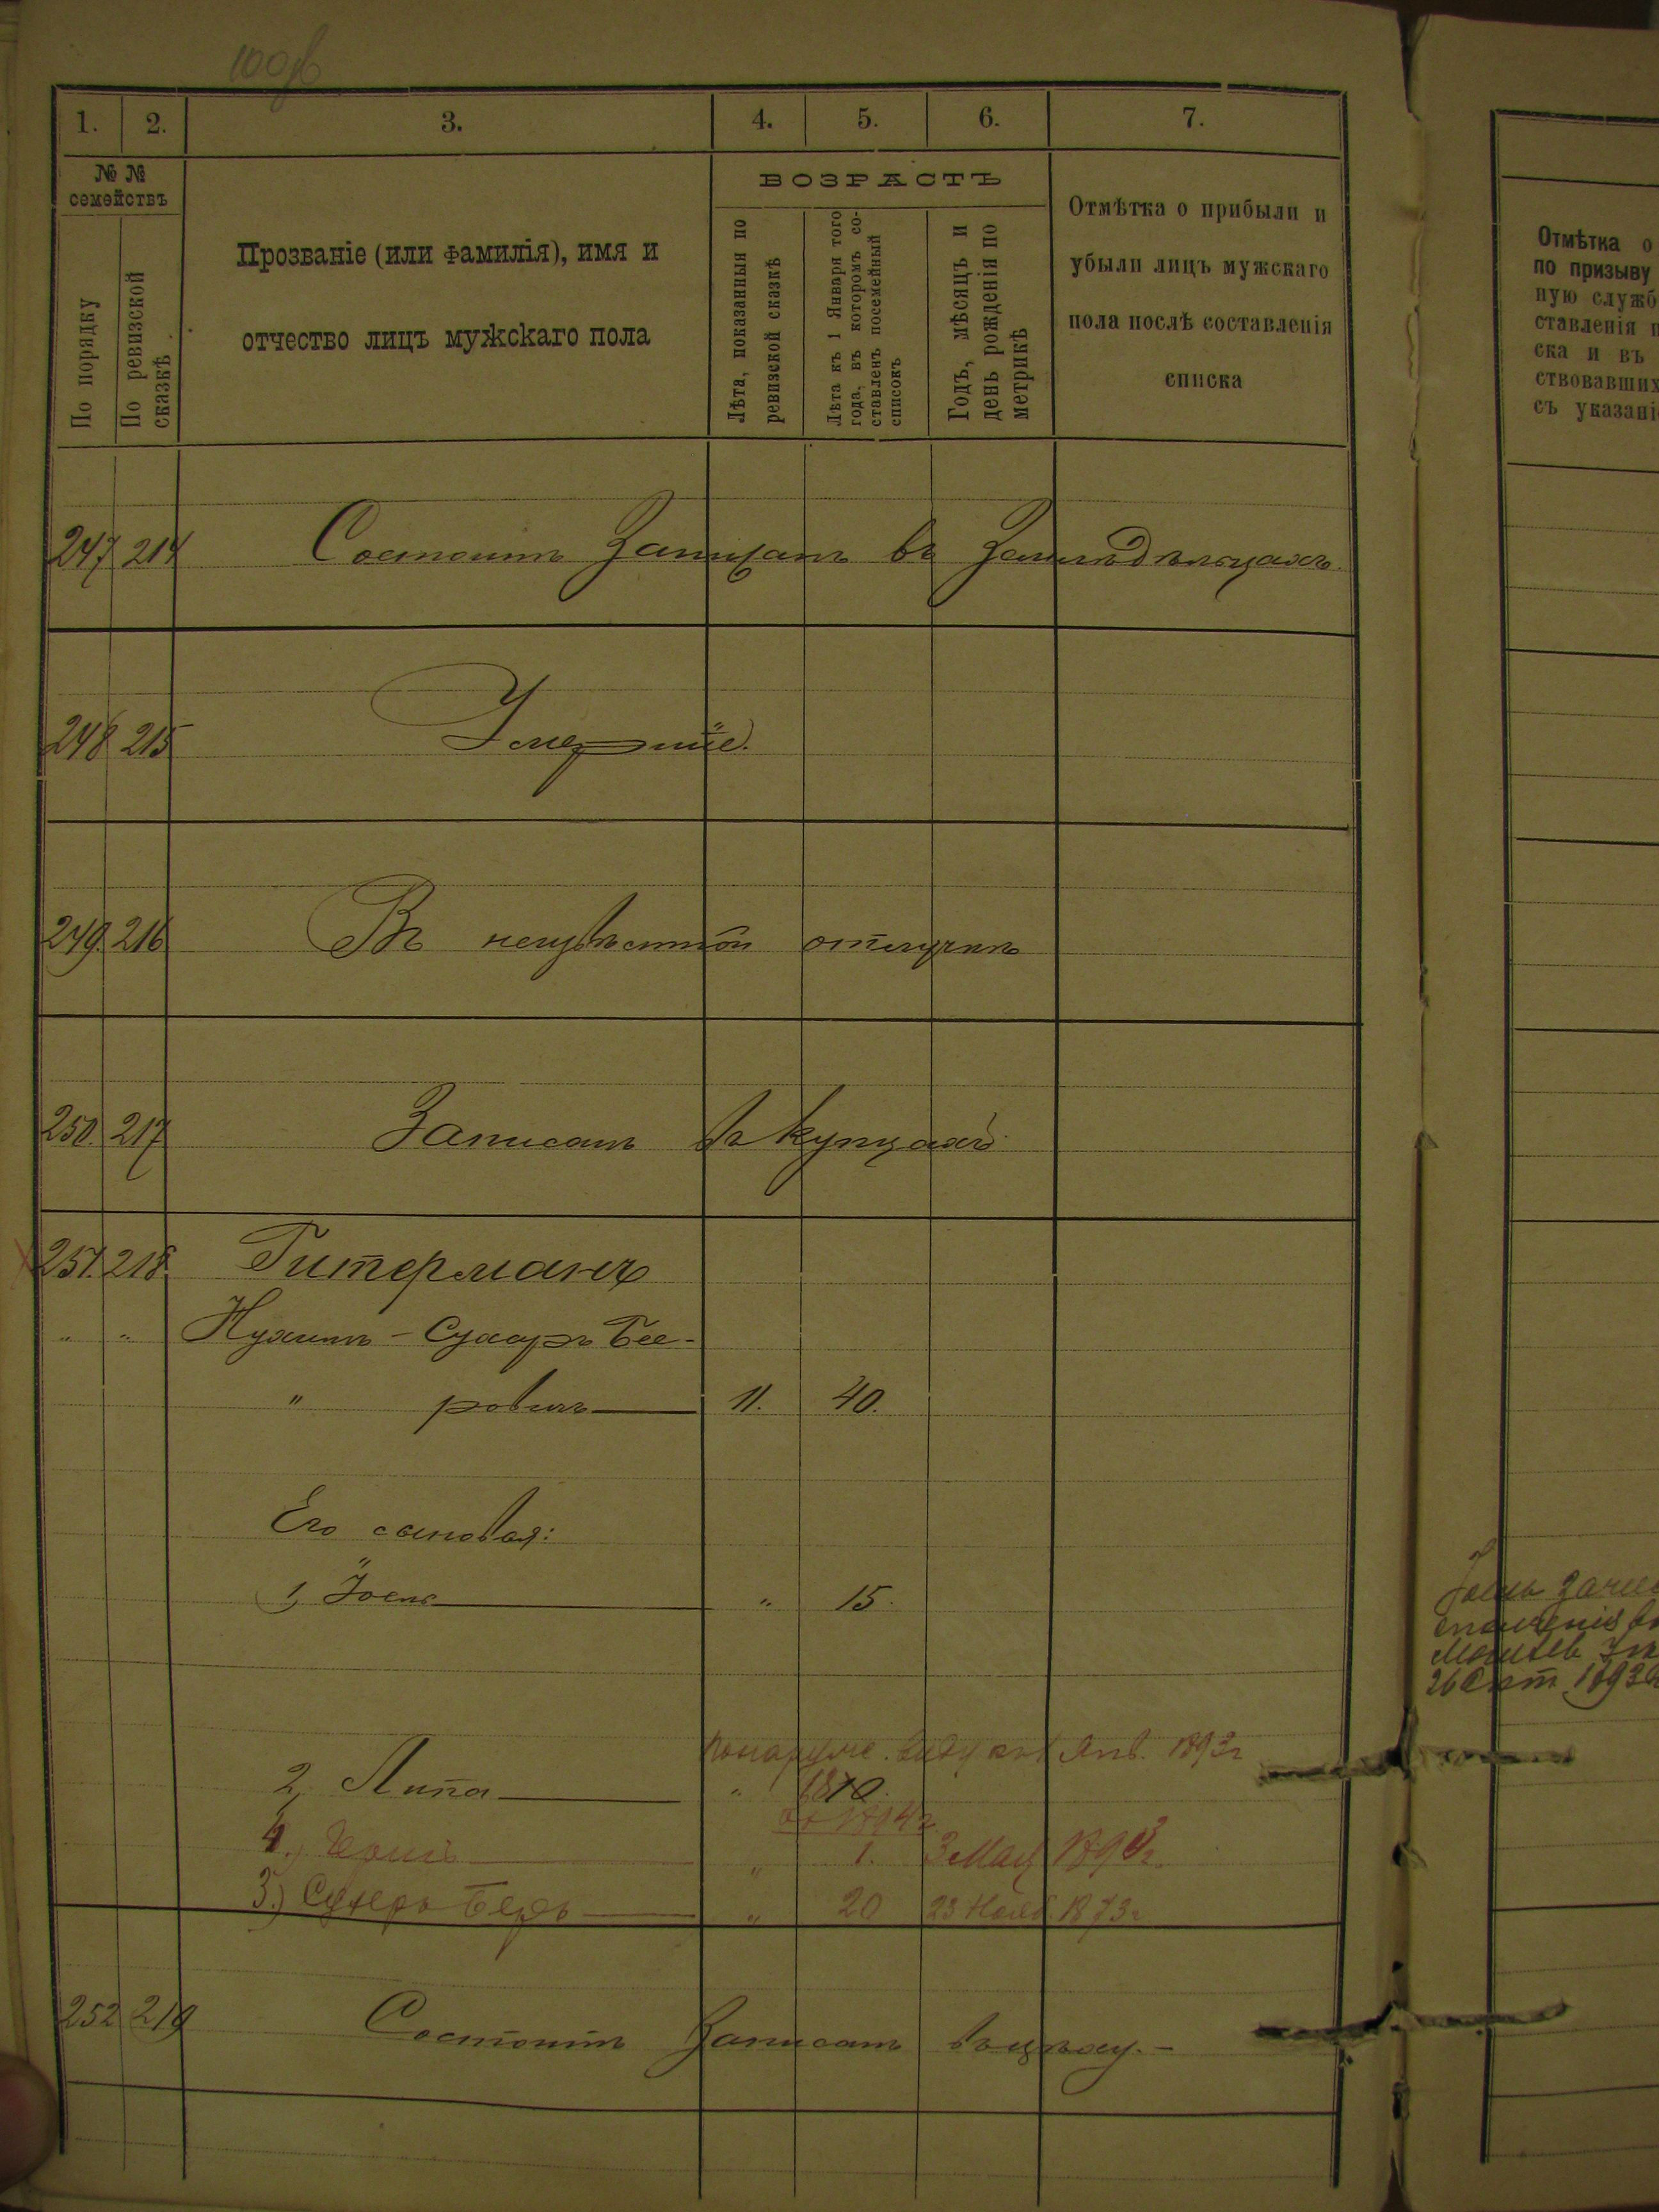 1. 2. 3. 4. 5. 6. 7.
№ №
семействъ
По порядку
По ревизской
сказкѣ
Прозваніе (или фамилія), имя и
отчество лицъ мужскаго пола
ВОЗРАСТЪ
Лѣта, показанныя по
ревизской сказкѣ
Лѣта къ 1 Января того
года, въ которомъ со-
ставленъ посемейный
списокъ
Годъ, мѣсяцъ и
день рожденія по
метрикѣ
Отмѣтка о прибыли и
убыли лицъ мужскаго
пола послѣ составленія
списка
247 214 Состоитъ Записанъ въ Земледѣльцахъ.
248 215 Умершіе.
249. 216 Въ неизвѣстной отлучкѣ
250. 217 Записанъ въ купцахъ
251. 218. Гитерманъ
" " Нухимъ - Сухаръ Бее-
" ровичъ 11. 40.
Его сыновья:
1, Іосль " 15.
Янв. 1893г
2, Липа " 10.
4.) " 1. 3 1893г.
3.) Сухеръ Беръ " 20 23 Нояб. 1873г
252 219 Состоитъ Записанъ въ цѣху. -
Отмѣтка о
по призыву
ную служб
ставленія п
ска и въ
ствовавших
съ указані
26 1893